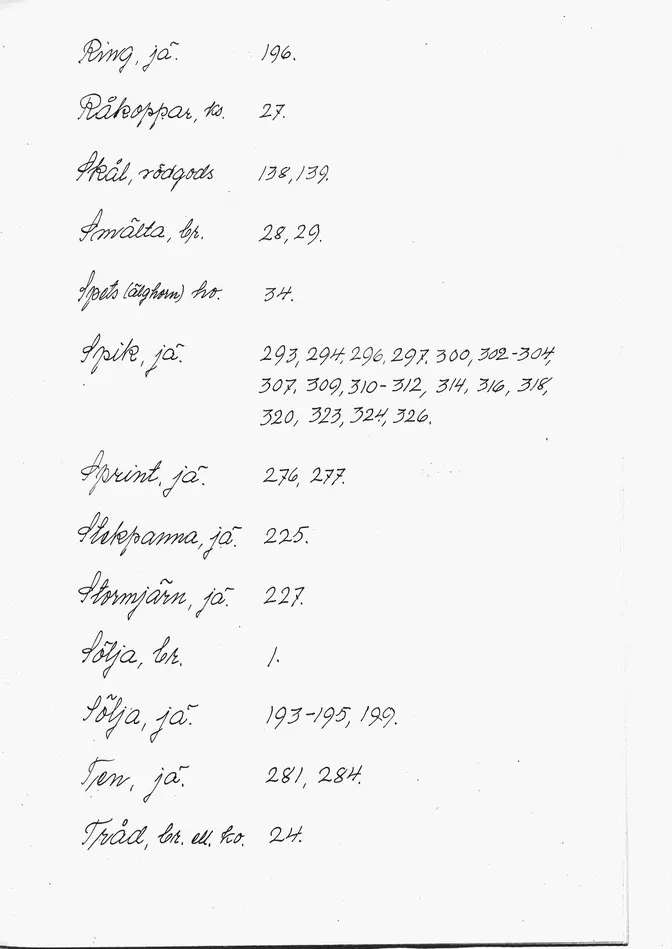 Ring, jä. 196.
Råkoppar, ko. 27.
Skål, rödgods 138, 139.
Smälta, br. 28, 29.
Spets (älghorn) ho. 34.
Spik, jä. 293, 294, 296, 297, 300, 302-304,
307, 309, 310-312, 314, 316, 318,
320, 323, 324, 326.
Sprint, jä. 276, 277.
Stekpanna, jä. 225.
Stormjärn, jä. 227.
Sölja, br. 1.
Sölja, jä. 193-195, 199.
Ten, jä. 281, 284.
Tråd, br. ell. ko. 24.